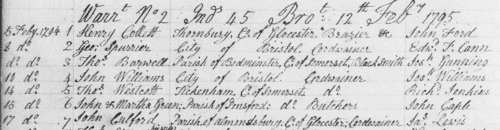 Warrt. No 2 Ind 45 Brot. 12th Feby 1795
5 Feby. 1794 1 Henry Collett Thornbury, C. of Glocester Brazier & John Ford
8 do 2 Geo. Spurrier City of Bristol Cordwainer Edwd. T. Cann
do do 3 Thos. Barwell Parish of Bedminster, C. of Somerset, Black Smith Jos. Gunning
10 do 4 John Williams City of Bristol. Cordwainer Jos. Williams
14 do 5 Thos. Westcott Tickenham, C. of Somerset, do Richd. Jenkins
15 do 6 John & Martha Green; Parish of do Butchers John Cable
17 do 7 John Parish of Almondsbury, C. of Glocester; Cordwainer Jas. Lewis